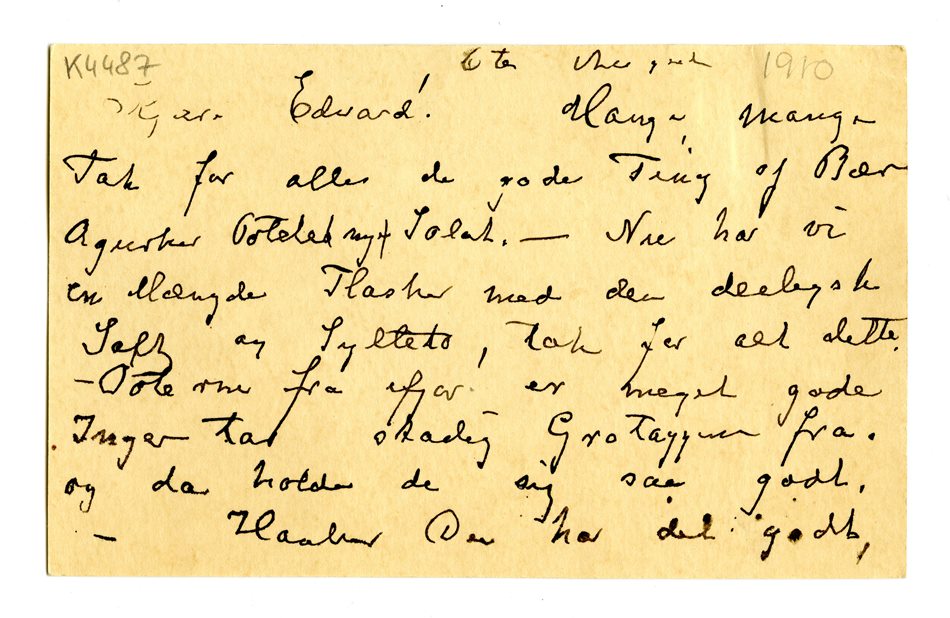 K4487 6te August 1910
Kjære Edvard! Mange, mange
Tak for alle de gode Ting af Bær
Agurker Poteter nye Salat. — Nu har vi
en Mængde Flasker med den deiligste
Saft og Syltetø, tak for alt dette.
— Poterne fra ifjor er meget gode
Inger tar stadig Grotappene fra.
og da holder de sig saa godt.
— Haaber Du har det godt,